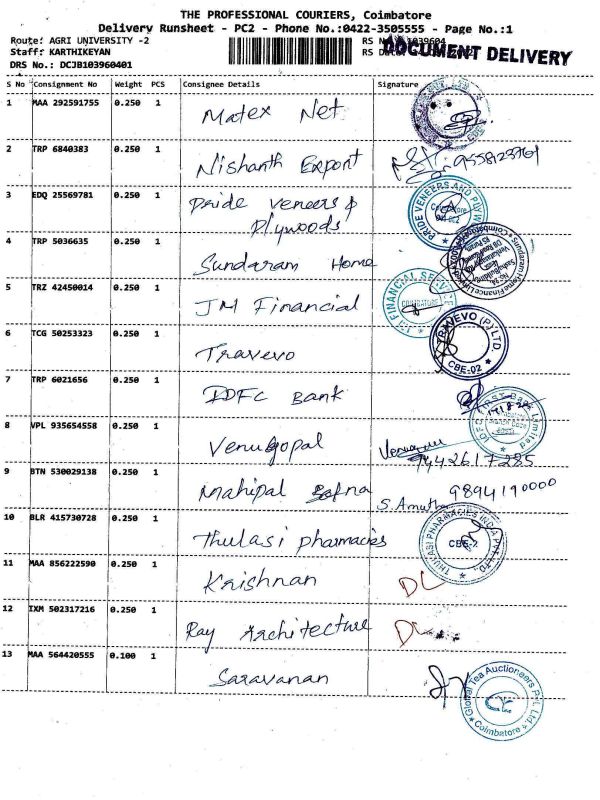 THE PROFESSIONAL COURIERS, Coimbatore
Delivery Runsheet - PC2 - Phone No.:0422-3505555 - Page No.:1
Route: AGRI UNIVERSITY -2
RS
DOCUMENT DELIVERY
Staff: KARTHIKEYAN
RS
DRS No.: DCJB103960401
S No Consignment No Weight PCS Consignee Details Signature
1 MAA 292591755 0.250 1 Matex Net
2 TRP 6840383 0.250 1 Nishanth Export
3 EDQ 25569781 0.250 1 Pride veneers & Plywoods PRIDE VENEERS AND
4 TRP 5036635 0.250 1 Sundaram Home
5 TRZ 42450014 0.250 1 JM Financial FINANCIAL
6 TCG 50253323 0.250 1 Travevo TRAVEVO (P) LTD. CBE-02
7 TRP 6021656 0.250 1 IDFC Bank
8 VPL 935654558 0.250 1 Venugopal 9442617285
9 BTN 530029138 0.250 1 Mahipal S. Amutha 9894190000
10 BLR 415730728 0.250 1 Thulasi pharmacies THULASI PHARMACIES INDIA PVT LTD CBE-2
11 MAA 856222590 0.250 1 Krishnan DL
12 IXM 502317216 0.250 1 Ray Architecture DL
13 MAA 564420555 0.100 1 Saravanan Global Tea Auctioneers Pvt. Ltd. Coimbatore